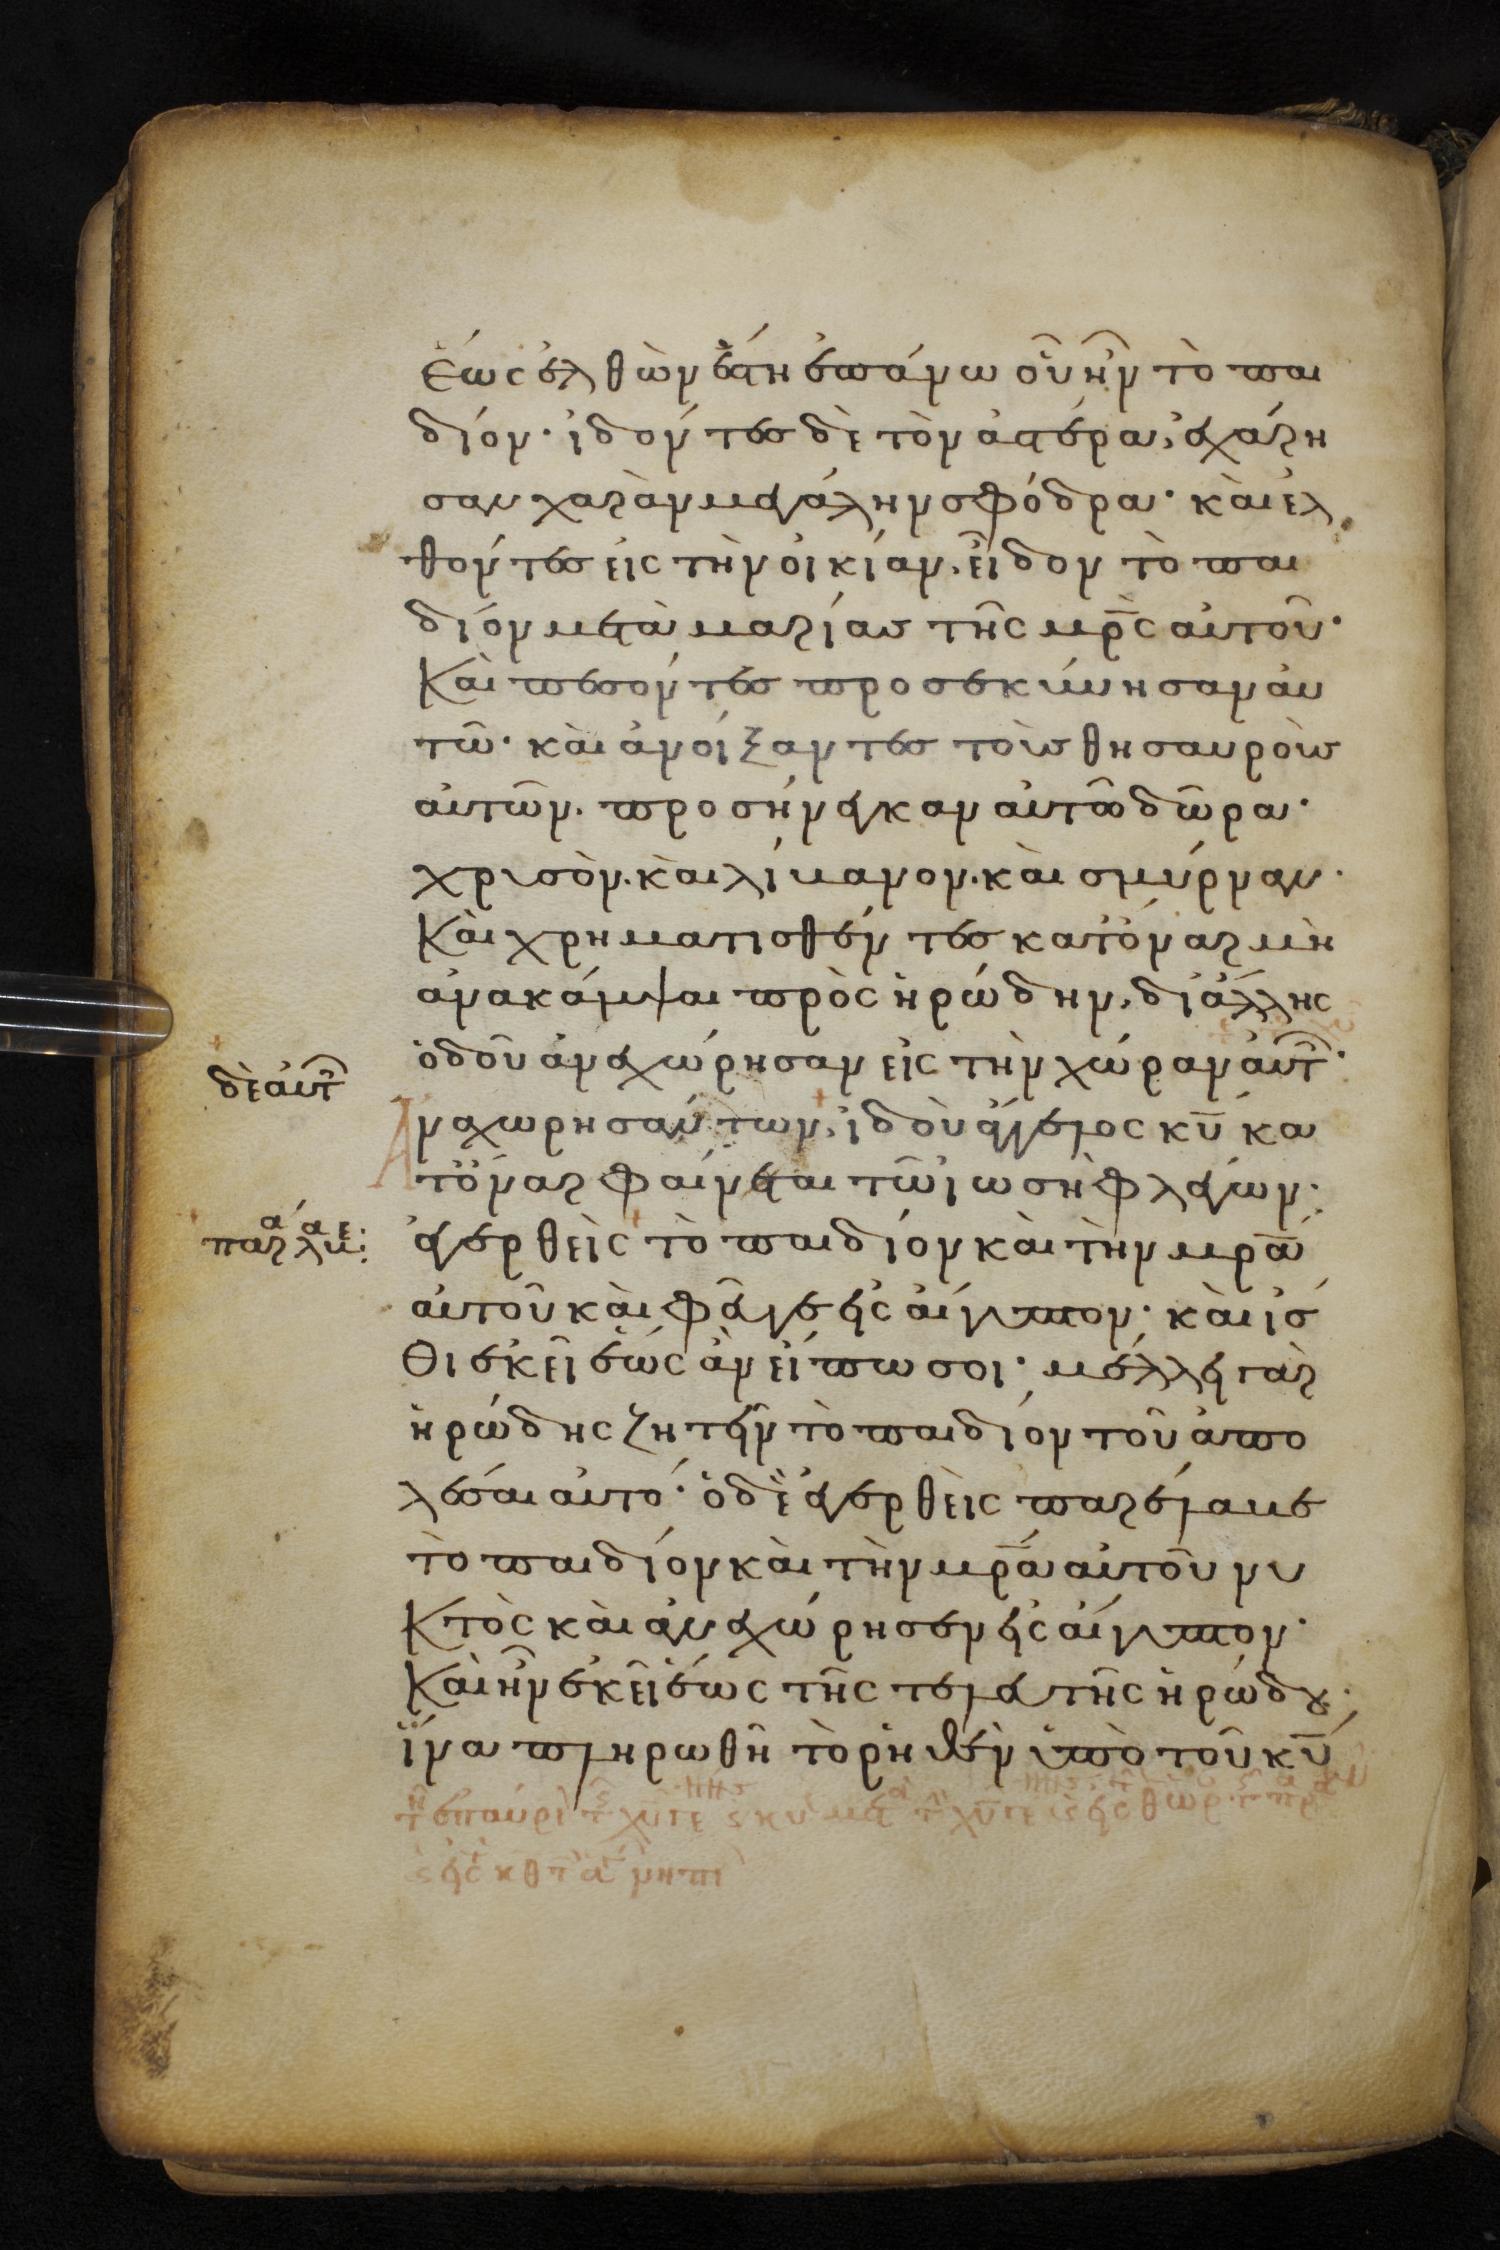 ἕως ἐλθὼν ἔστη ἐπάνω οὗ ἦν τὸ παι
δίον· ἰδόντες δὲ τὸν ἀστέρα, ἐχάρη
σαν χαρὰν μεγάλην σφόδρα· καὶ ἐλ
θόντες εἰς τὴν οἰκίαν, εἶδον τὸ παι
δίον μετὰ μαρίας τῆς μρ̅ς αὐτοῦ·
Καὶ πεσόντες προσεκύνησαν αὐ
τῶ· καὶ ἀνοίξαντες τοὺς θησαυροὺς
αὐτῶν, προσήνεγκαν αὐτῶ δῶρα·
χρυσὸν· καὶ λίβανον· καὶ σμύρναν·
Καὶ χρηματισθέντες κατ' ὄναρ μὴ
ἀνακάμψαι πρὸς ἡρώδην, δι' ἄλλης
ὁδοῦ ἀνεχώρησαν εἰς τὴν χώραν αὐτ·
δὲ αὐτ
Αναχωρησάντων, ἰδοὺ ἄγγελος κ̅υ̅ κα
τ' ὄναρ φαίνεται τῶ ἰωσὴφ λέγων·
παρ λβ:
ἐγερθεὶς τὸ παιδίον καὶ τὴν μρ̅α
αὐτοῦ καὶ φεῦγε εἰς αἴγυπτον· καὶ ἴσ
θι ἐκεῖ ἕως ἂν εἴπω σοι· μέλλει γὰρ
ἡρώδης ζητεῖν τὸ παιδίον τοῦ ἀπο
λέσαι αὐτό· ὁ δὲ ἐγερθεὶς παρέλαβε
τὸ παιδίον καὶ τὴν μρ̅α αὐτοῦ νυ
κτὸς καὶ ἀνεχώρησεν εἰς αἴγυπτον·
Καὶ ἦν ἐκεῖ ἕως τῆς τελευτῆς ἡρώδου·
ἵνα πληρωθῆ τὸ ρηθὲν ὑπὸ τοῦ κ̅υ̅